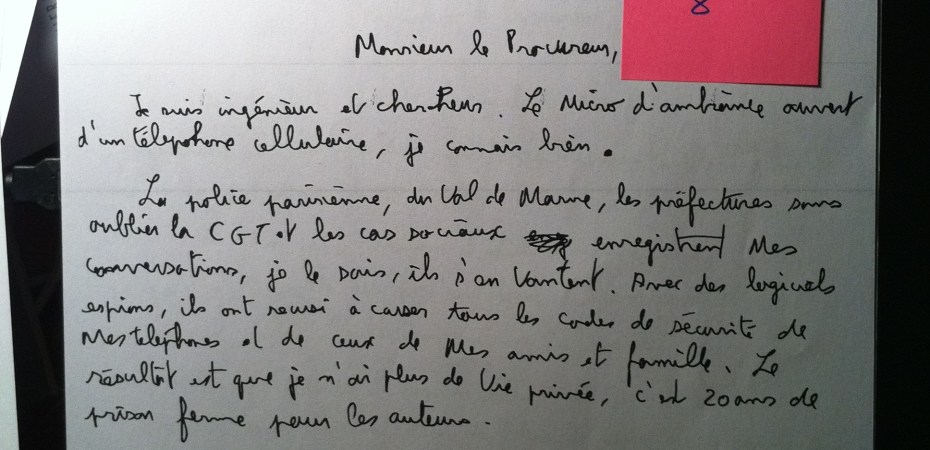 8
Monsieur le Procureur,
Je suis ingénieur et chercheur. Le Micro d'ambiance ouvert
d'un téléphone cellulaire, je connais bien.
La police parisienne, du Val de Marne, les préfectures sans
oublier la CGT et les cas sociaux enregistrent Mes
conversations, je le sais, ils s'en vantent. Avec des logiciels
espions, ils ont reussi à casser tous les codes de sécurité de
Mes telephones et de ceux de Mes amis et famille. Le
résultat est que je n'ai plus de Vie privée, c'est 20 ans de
prison ferme pour les auteurs.